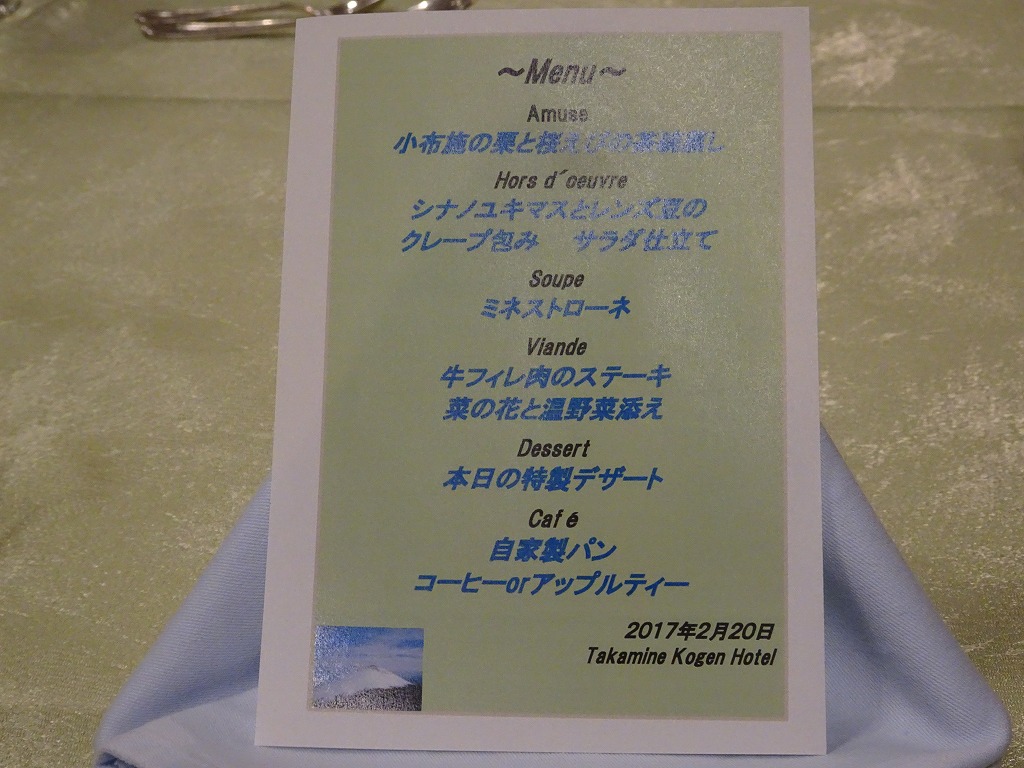 ～Menu～
Amuse
小布施の栗と桜えびの茶碗蒸し
Hors d´oeuvre
シナノユキマスとレンズ豆の
クレープ包み　サラダ仕立て
Soupe
ミネストローネ
Viande
牛フィレ肉のステーキ
菜の花と温野菜添え
Dessert
本日の特製デザート
Café
自家製パン
コーヒーorアップルティー
2017年2月20日
Takamine Kogen Hotel